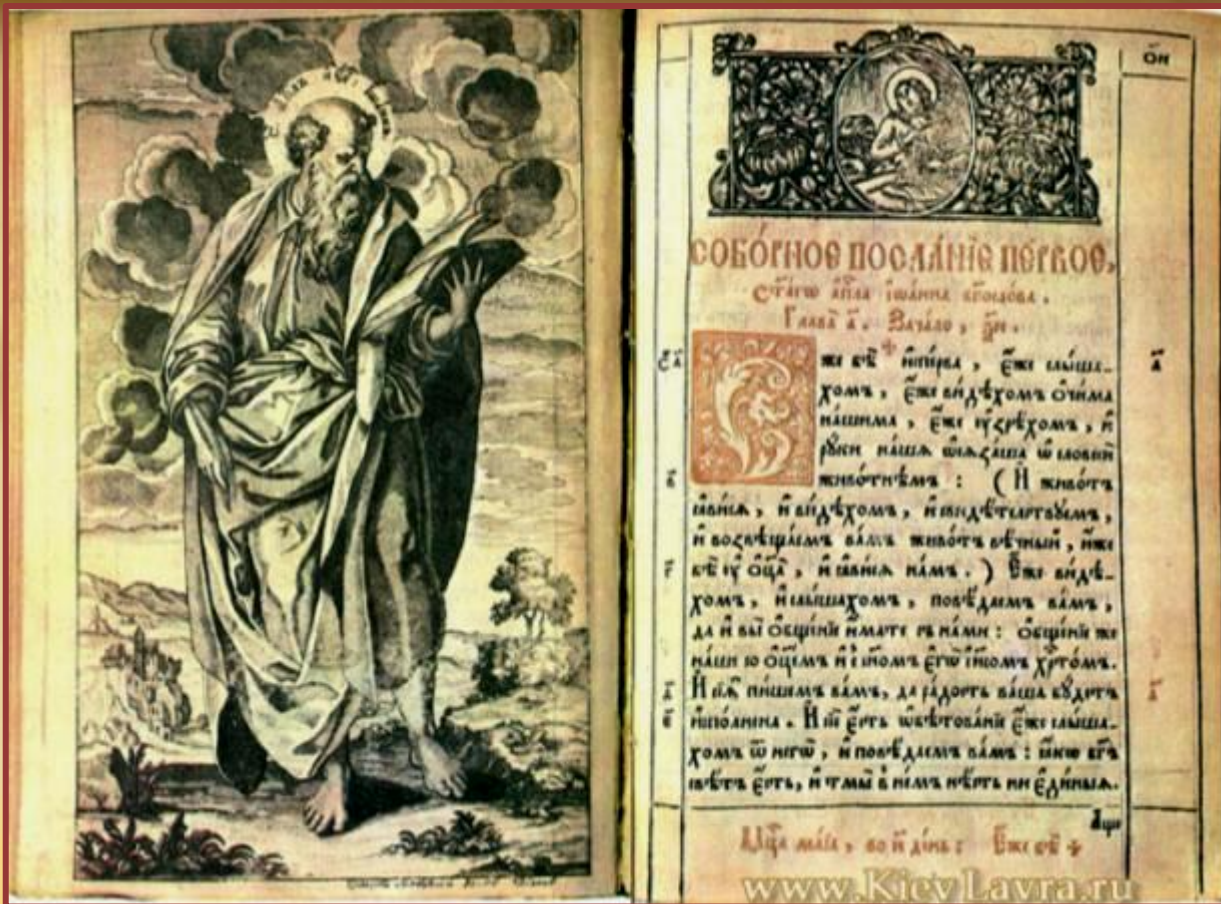 ѻ҃и
СОБО́РНОЕ ПОСЛА́НЇЕ ПЕ́РВОЕ,
Ст҃а́гѡ а҆пⷭ҇ла і҆ѡа́нна бг҃осло́ва.
Глава̀ а҃. Зача́ло,
же бѣ̀ и҆спе́рва, є҆́же слы́ша-
хомъ, є҆́же ви́дѣхомъ ѻ҆чи́ма
на́шима, є҆́же ᲂу҆зрѣ́хомъ, и҆
рꙋ́ки на́шѧ ѡ҆сѧза́ша ѡ҆ словесѝ
живо́тнѣмъ: (И҆ живо́тъ
ꙗ҆ви́сѧ, и҆ ви́дѣхомъ, и҆ свидѣ́телствꙋемъ,
и҆ возвѣща́емъ ва́мъ живо́тъ вѣ́чный, и҆́же
бѣ̀ ᲂу҆ ѻ҆ц҃а̀, и҆ ꙗ҆ви́сѧ на́мъ.) Є҆́же ви́дѣ-
хомъ, и҆ слы́шахомъ, повѣ́даемъ ва́мъ,
да и҆ вы̀ ѻ҆бще́нїе и҆́мате съ на́ми: ѻ҆бще́нїе же
на́ше со ѻ҆ц҃е́мъ и҆ с҃номъ є҆гѡ̀ і҆и҃сомъ хрⷭ҇то́мъ.
И҆ сїѧ̑ пи́шемъ ва́мъ, да ра́дость ва́ша бꙋ́детъ
и҆спо́лнена. И҆ сїѐ є҆́сть ѡ҆бѣтова́нїе є҆́же слы́ша-
хомъ ѿ негѡ̀, и҆ повѣ́даемъ ва́мъ: ꙗ҆́кѡ бг҃ъ
свѣ́тъ є҆́сть, и҆ тмы̀ в не́мъ нѣ́сть ни є҆ди́ныѧ.
А҆́ще
Мцⷭ҇а ма́їа, во и҃ де́нь: Є҆́же бѣ̀
www.KievLavra.ru